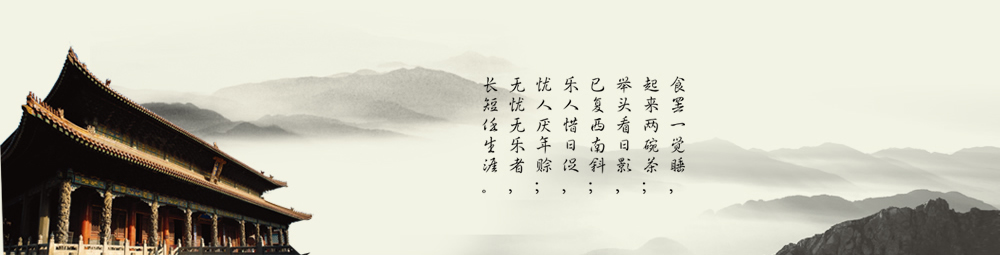 食罢一觉睡，
起来两碗茶；
举头看日影，
已复西南斜；
乐人惜日促，
忧人厌年赊；
无忧无乐者，
长短任生涯。